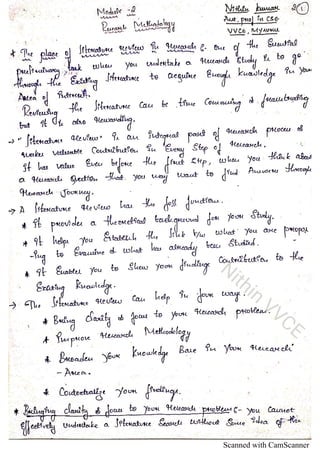 Module -2
Research Methodology
Nithin kumar
Asst. prof in CSE
VVCE, Mysuru
1
* The place of literature review in research :- One of the Essential
preliminary task when you undertake a research study is to go
through the Existing literature to acquire Enough knowledge in your
Area of Interest.
Reviewing the literature can be time consuming & frustrating
but it is also rewarding.
-> "literature review" is an integral part of research process &
makes valuable Contribution in Every Step of research.
It has value Even before the first step, when you think about
a research question that you may want to find Answers through
research journey.
-> A literature review has the foll function.
* It provides a theoretical background for your study.
* It helps you Establish the link b/w what you are propos
-ing to Examine & what has already been studied.
* It Enables you to show your findings Contribution to the
Existing knowledge.
-> The literature review can help in four ways.
* Bring Clarity & focus to your research problem.
* Improve research Methodology
* Broaden your knowledge Base in your research
- Area.
* Contextualize your findings.
* Bringing clarity & focus to your research problem :- You cannot
Effectively undertake a literature Search without Some Idea of the
Nithin VVCE
Scanned with CamScanner